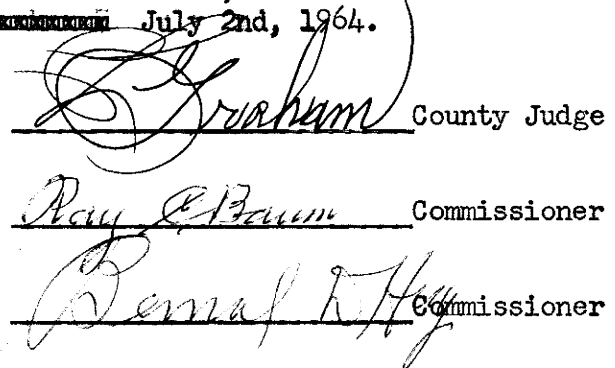 July 2nd, 1964.
Graham County Judge
Ray Baum Commissioner
Commissioner